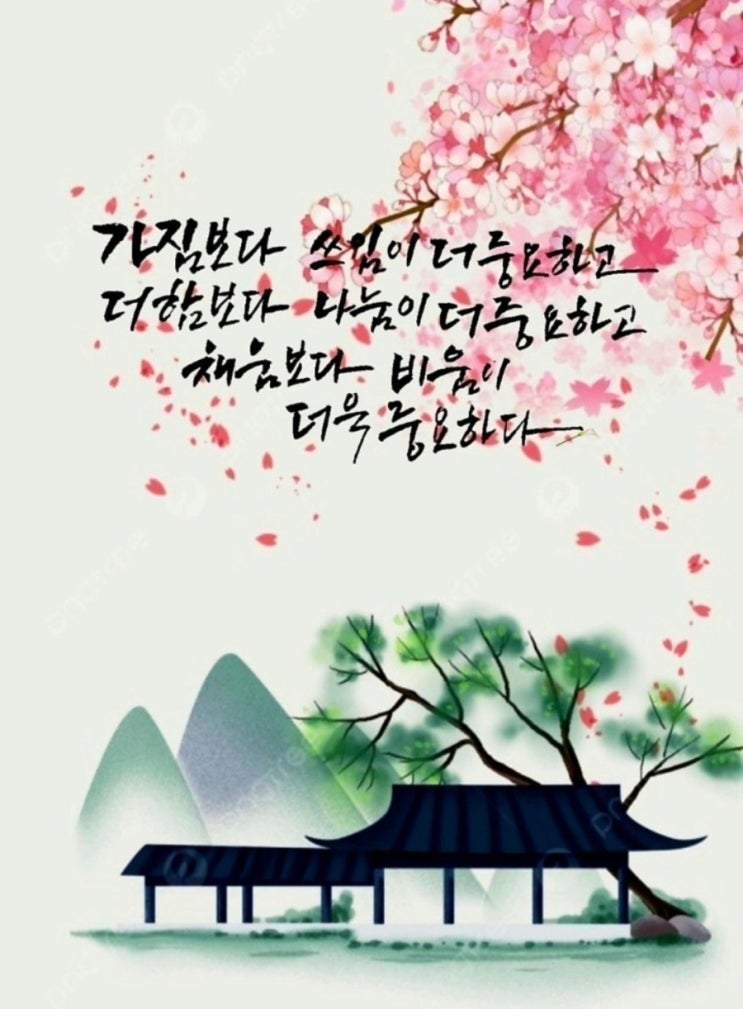 가짐보다 쓰임이 더 중요하고
더함보다 나눔이 더 중요하고
채움보다 비움이
더욱 중요하다